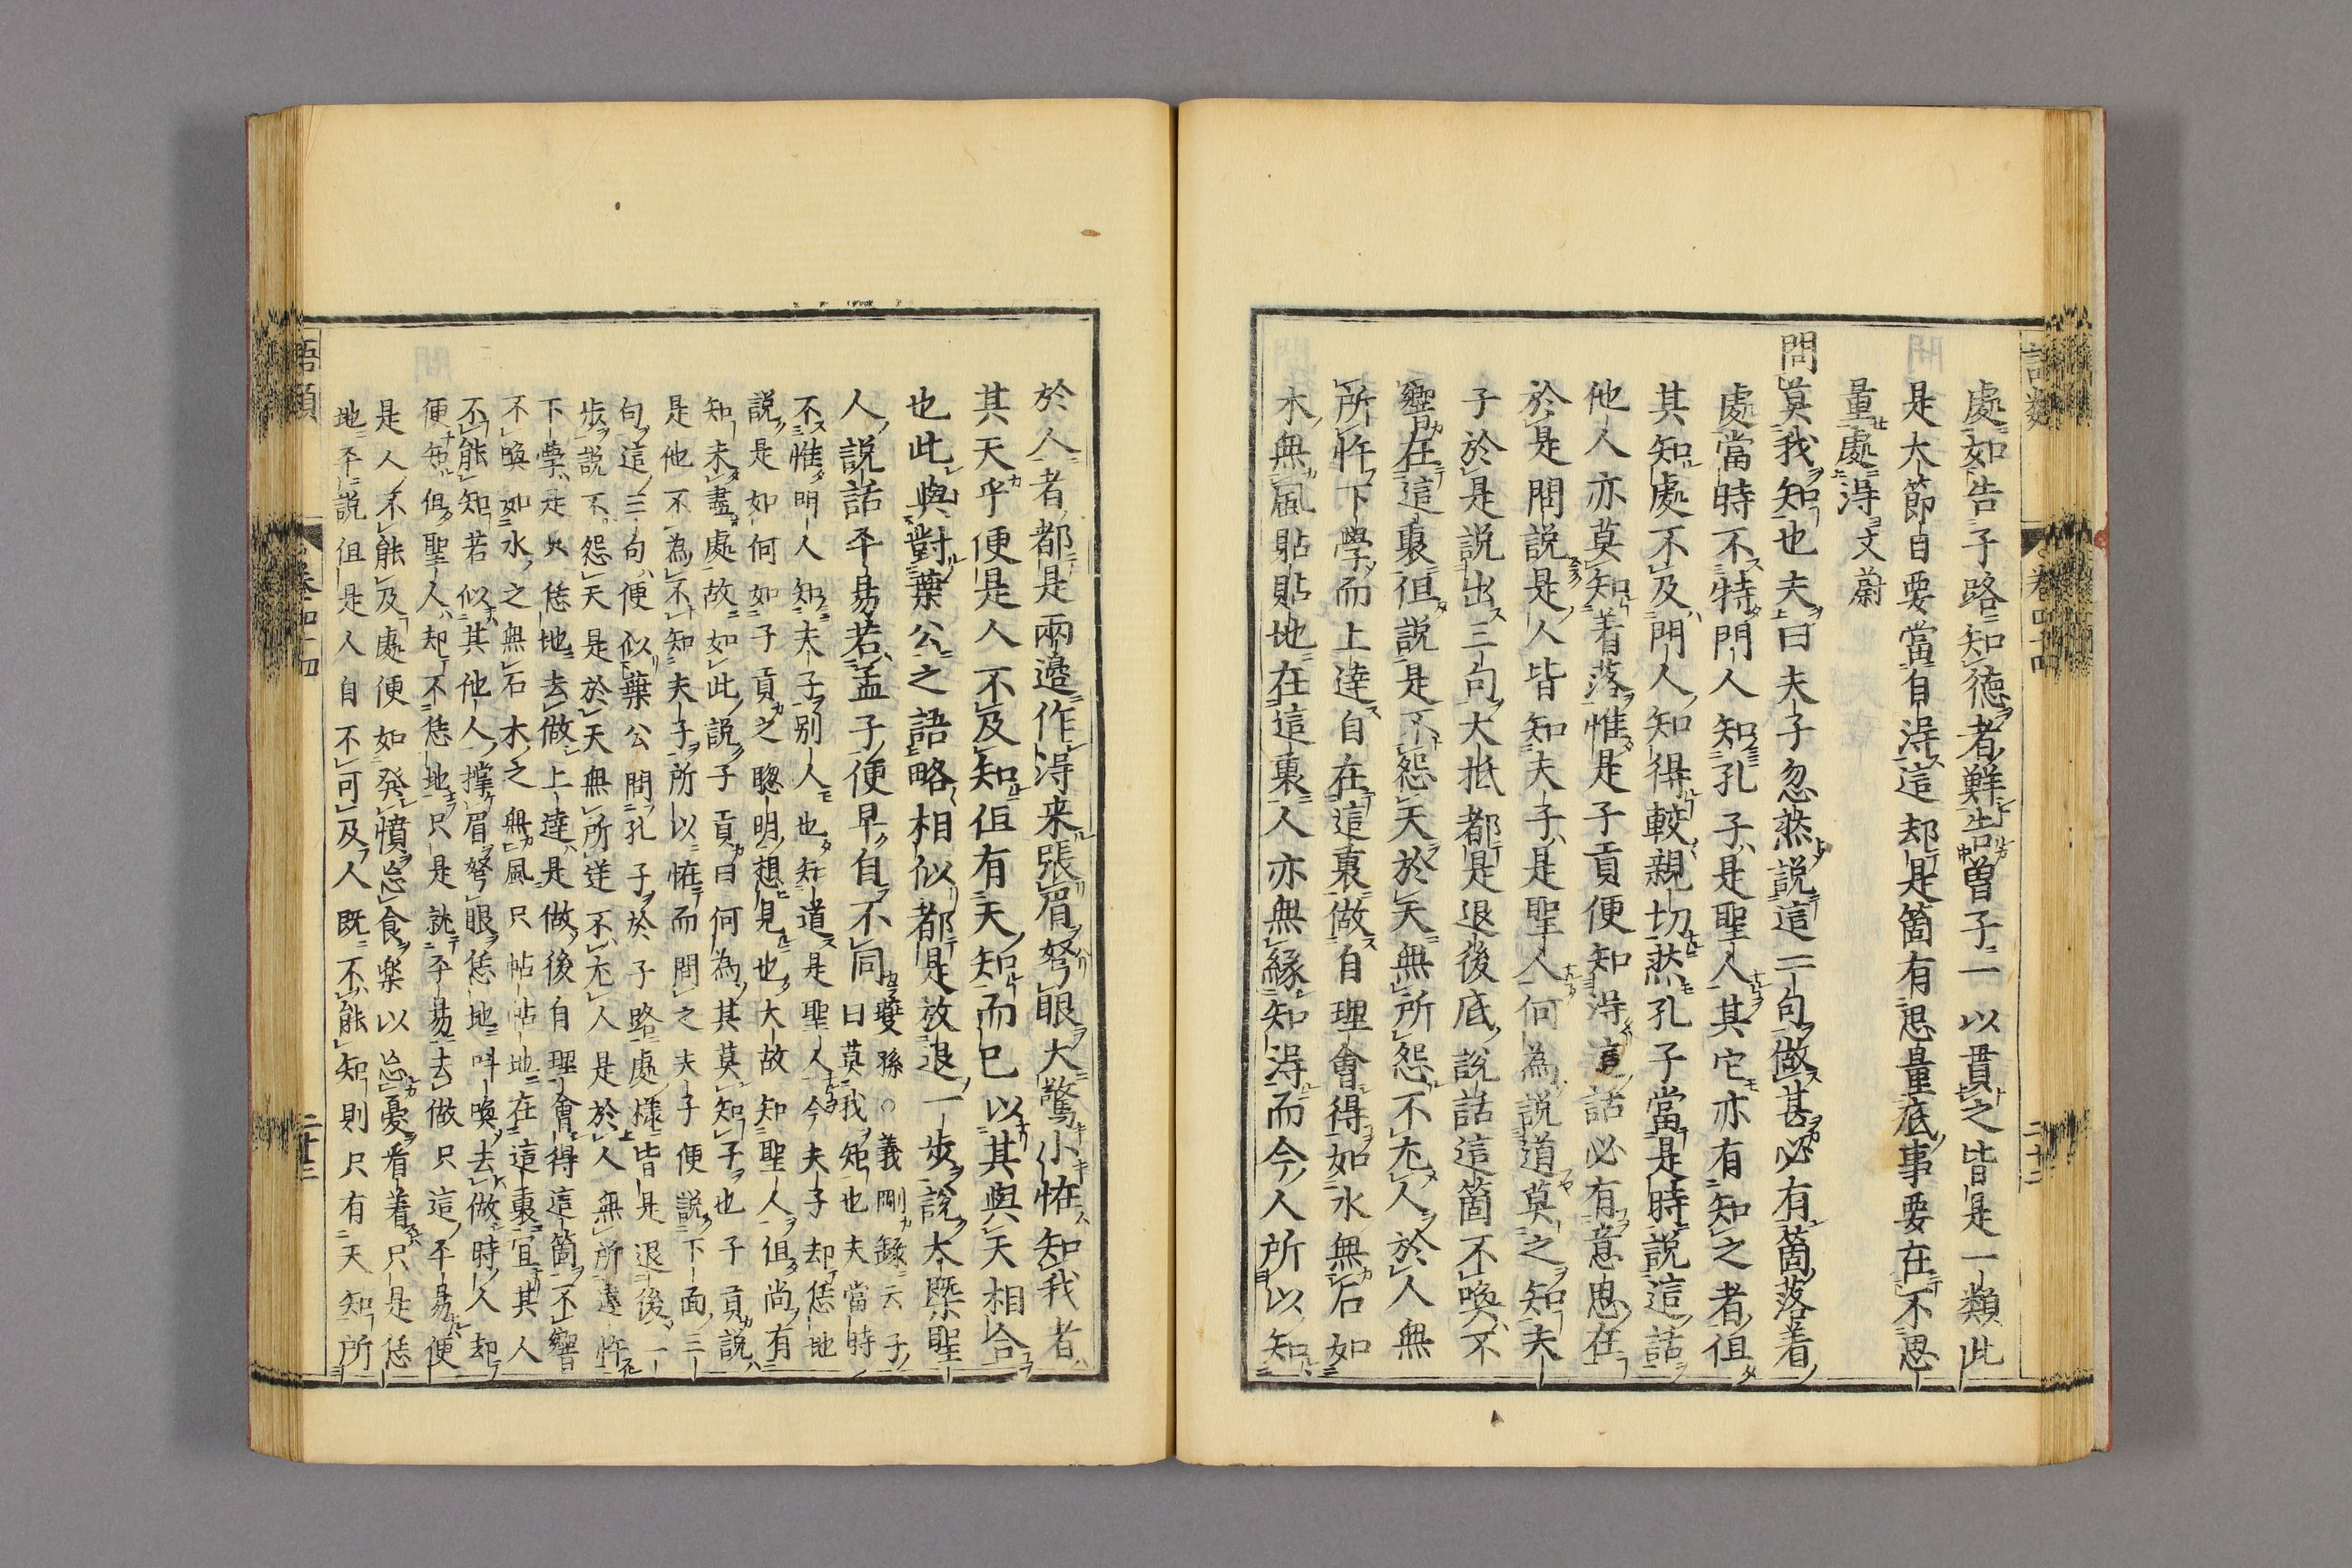 語類 卷四十四 二十二
處如告子路知德者鮮告曽子一以貫之皆是一類此
是大節目要當自淂這却是箇有思量底事要在不思
量處淂文蔚
問莫我知也夫曰夫子忽然說這一句做甚必有箇落着
處當時不特門人知孔子是聖人其它亦有知之者但
其知處不及門人知得較親切然孔子當是時說這話
他人亦莫知着落惟是子貢便知淂這話必有意思在
於是問說是人皆知夫子是聖人何為說道莫之知夫
子於是說出三句大抵都是退後底說話這箇不喚不
響在這裏但說是不怨天於天無所怨不尤人於人無
所忤下學而上達自在這裏做自理會得如水無石如
木無風貼貼地在這裏人亦無緣知淂而今人所以知
於人者都是兩邉作淂来張眉弩眼大驚小恠知我者
其天乎便是人不及知但有天知而已以其與天相合
也此與對葉公之語略相似都是放退一步說大槩聖
人說話平易若孟子便早自不同夔孫○義剛錄云子
曰莫我知也夫當時
不惟明人知夫子别人也知道是聖人今夫子却恁地
說是如何如子貢之聰明想見也大故知聖人但尚有
知未盡處故如此說子貢曰何為其莫知子也子貢說
是他不為不知夫子所以恠而問之夫子便說下面三
句這三句便似葉公問孔子於子路處様皆是退後一
步說不怨天是於天無所逆不尤人是於人無所違忤
下學是只恁地去做上達是做後自理會得這箇不響
不喚如水之無石木之無風只帖帖地在這裏宜其人
不能知若似其他人撑眉弩眼恁地叫喚去做時人却
便知但聖人却不恁地只是就平易去做只這平易便
是人不能及處便如發憤忘食楽以忘憂看着只是恁
地平說但是人自不可及人既不能知則只有天知所
語類 卷四十四 二十三